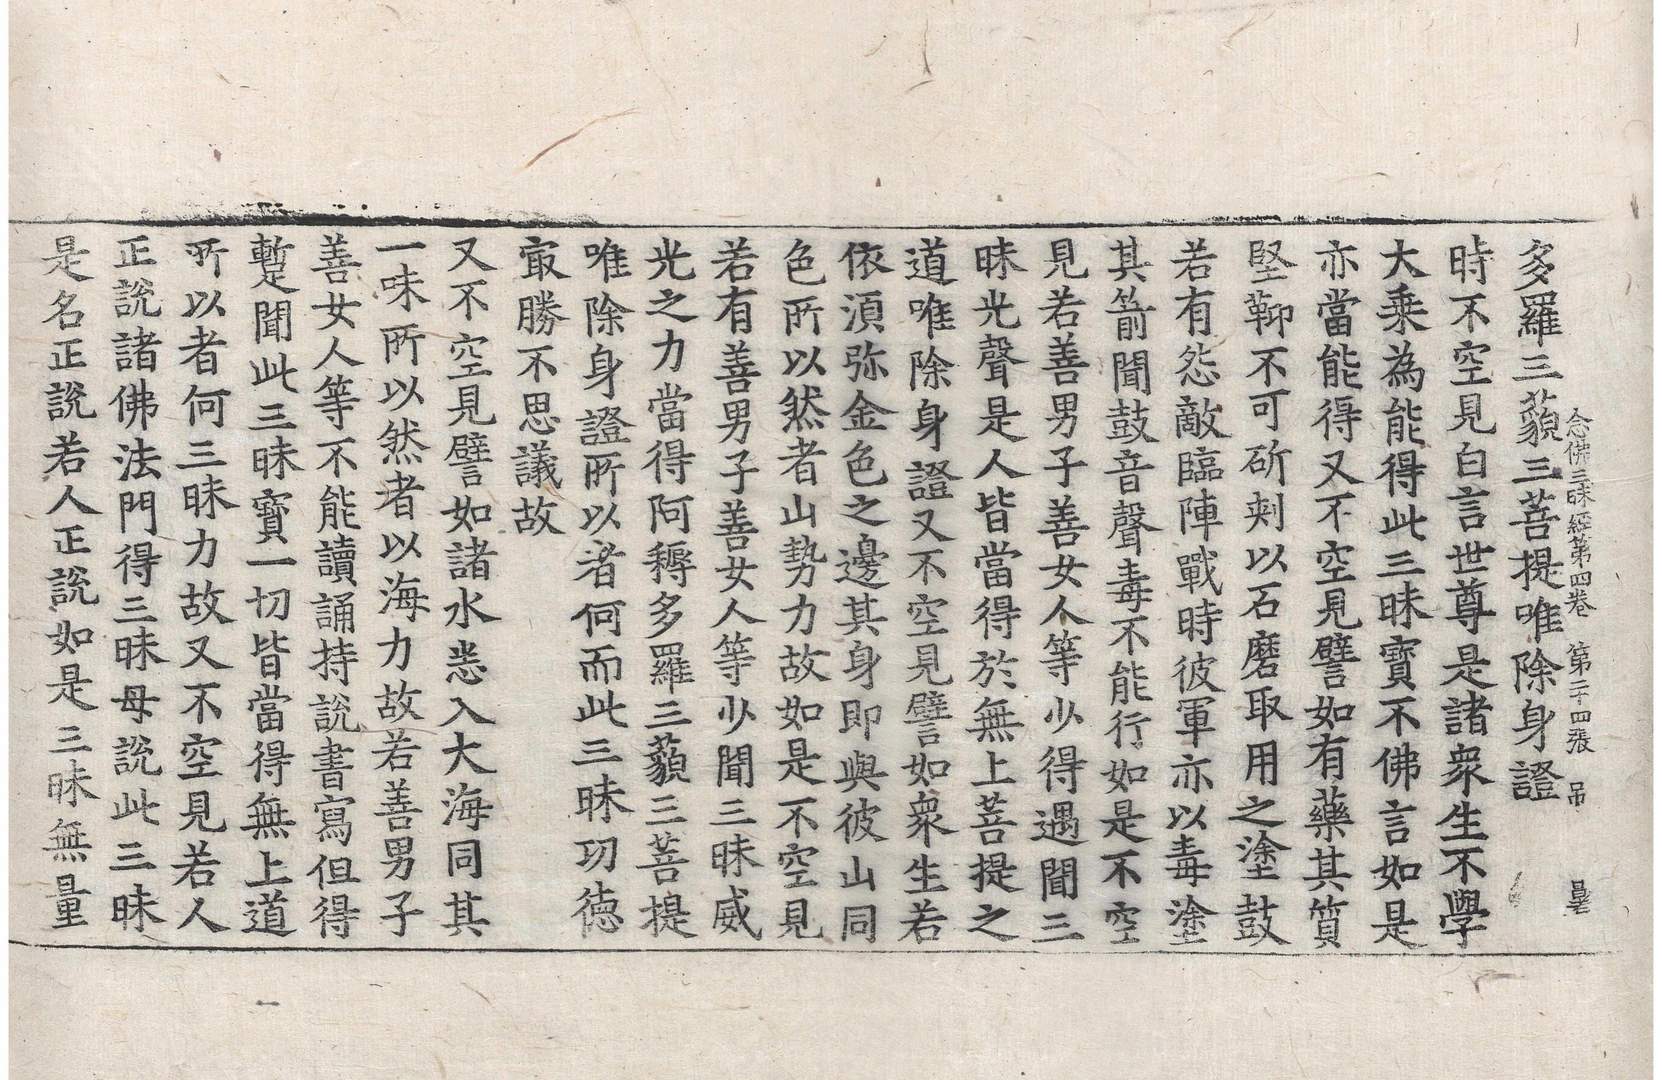 念佛三昧經第四卷　第二十四張　吊
多羅三藐三菩提唯除身證
時不空見白言世尊是諸衆生不學
大乘為能得此三昧寶不佛言如是
亦當能得又不空見譬如有藥其質
堅鞕不可斫刾以石磨取用之塗鼓
若有怨敵臨陣戰時彼軍亦以毒塗
其箭聞鼓音聲毒不能行如是不空
見若善男子善女人等少得遇聞三
昧光聲是人皆當得於無上菩提之
道唯除身證又不空見譬如衆生若
依湏弥金色之邊其身即與彼山同
色所以然者山勢力故如是不空見
若有善男子善女人等少聞三昧威
光之力當得阿耨多羅三藐三菩提
唯除身證所以者何而此三昧功德
㝡勝不思議故
又不空見譬如諸水悉入大海同其
一味所以然者以海力故若善男子
善女人等不能讀誦持說書寫但得
蹔聞此三昧寶一切皆當得無上道
所以者何三昧力故又不空見若人
正說諸佛法門得三昧母說此三昧
是名正說若人正說如是三昧無量